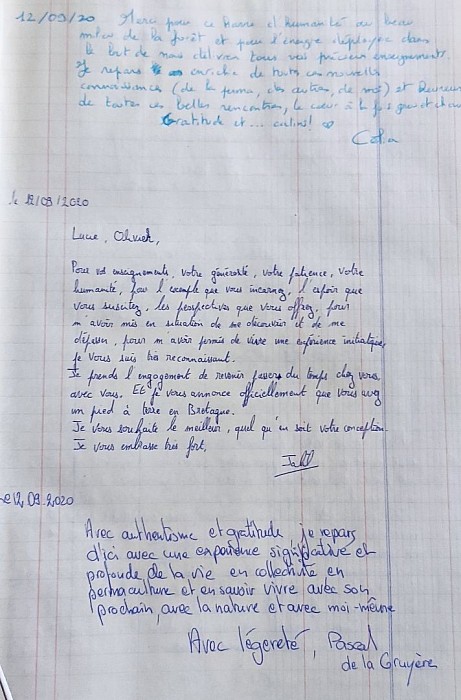 12/09/20 Merci pour ce Havre d'humanité au beau
milieu de la forêt et pour l'énergie déployée dans
le but de nous délivrer tous vos précieux enseignements.
Je repars enrichie de toutes ces nouvelles
connaissances (de la perma, des autres, de moi) et Heureuse
de toutes ces belles rencontres, le coeur à la fois gros et chaud
Gratitude et... calins!
le 12/09/2020
Lucie, Olivier,
Pour vos enseignements, votre générosité, votre patience, votre
humanité, pour l'exemple que vous incarnez, l'espoir que
vous suscitez, les perspectives que vous offrez, pour
m'avoir mis en situation de me découvrir et de me
dépasser, pour m'avoir permis de vivre une expérience initiatique,
je vous suis très reconnaissant.
Je prends l'engagement de revenir passer du temps chez vous
avec vous. Et je vous annonce officiellement que vous avez
un pied à terre en Bretagne.
Je vous souhaite le meilleur, quel qu'en soit votre conception.
Je vous embrasse très fort,
le 12.09.2020
Avec authentisme et gratitude, je repars
d'ici avec une expérience significative et
profonde de la vie en collectivité en
permaculture et en savoir vivre avec son
prochain, avec la nature et avec moi-même
Avec légereté, Pascal
de la Gruyère